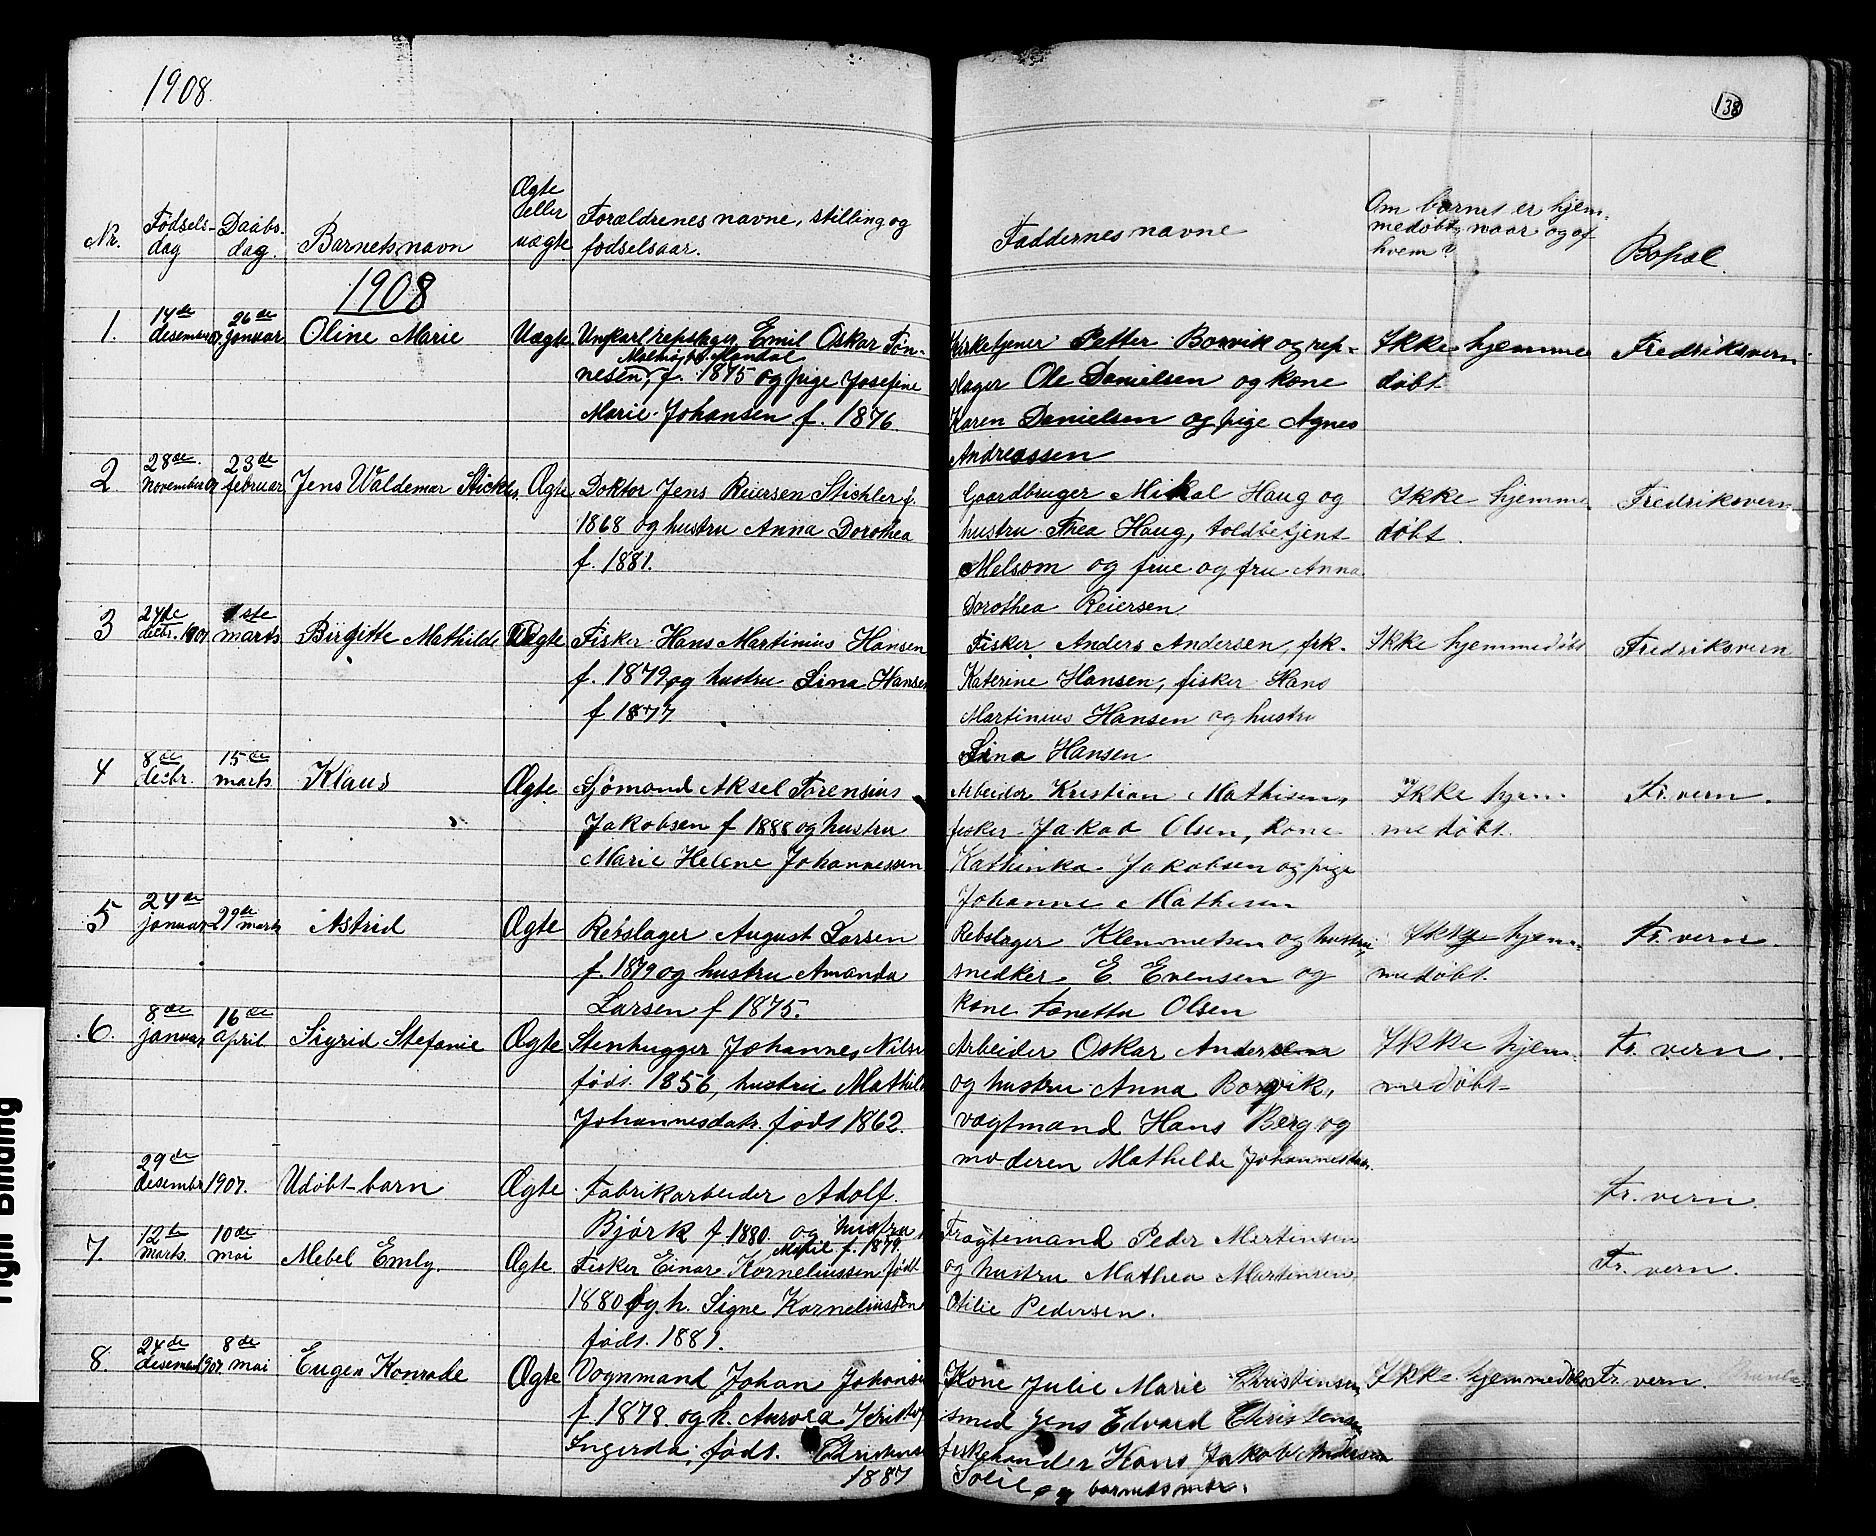 1908.
138
Nr.
Fødsels-
dag
Daabs-
dag.
Barnets navn
Ægte
eller
uægte
Forældrenes navne, stilling og
fødselsaar.
Faddernes navne
Om barnet er hjem-
medøbt, naar og af
hvem?
Bopæl.
1908
1.
14de
desember 07
26de
januar
Oline Marie
Uægte
Ungkarl repslager Emil Oskar Tøn-
nesen, f. 1875 og pige Josefine
Marie Johansen f. 1876.
Kirketjener Petter Borvik og rep-
slager Ole Danielsen og kone
Karen Danielsen og pige Agnes
Andreassen
Ikke hjemme
døbt
Fredriksvern
2
28de
november 07
23de
februar
Jens Waldemar Stichler
Ægte
Doktor Jens Reiersen Stichler f.
1868 og hustru Anna Dorothea
f. 1881.
Gaardbruger Mikal Haug og
hustru Thea Haug, toldbetjent
Melsom og frue og fru Anna
Dorothea Reiersen
Ikke hjemme
døbt.
Fredriksvern
3
24de
decbr. 1907
1ste
marts
Birgitte Mathilde
Ægte
Fisker Hans Martinius Hansen
f. 1879 og hustru Lina Hansen
f 1877
Fisker Anders Andersen, frk.
Katerine Hansen, fisker Hans
Martinius Hansen og hustru
Lina Hansen
Ikke hjemmedøbt
Fredriksvern
4
8de
decbr.
15de
marts
Klaus
Ægte
Sjømand Aksel Torensius
Jakobsen f 1888 og hustru
Marie Helene Johannessen
Arbeider Kristian Mathisen,
fisker Jakob Olsen, kone
Kathinka Jakobsen og pige
Johanne Mathisen
Ikke hjem-
medøbt.
Fr. vern.
5
24de
januar
29de marts
Astrid
Ægte
Rebslager August Larsen
f. 1879 og hustru Amanda
Larsen f 1875.
Rebslager Klemmetsen og hustru,
snedker E. Evensen og
kone Tonetta Olsen
Ikke hjem-
medøbt.
Fr. vern.
6.
8de
januar
16de
April
Sigrid Stefanie
Ægte
Stenhugger Johannes Nilsen
født. 1856, hustru Mathilde
Johannesdatr. født 1862.
Arbeider Oskar Andersen
og hustru Anna Borvik,
vagtmand Hans Berg og
moderen Mathilde Johannesdatr.
Ikke hjem-
medøbt
Fr. vern.
29de
desembr 1907.
Udøbt barn
Ægte
Fabrikarbeider Adolf
Bjørk f. 1880 og hustru
f. 1879
Fr. vern.
7.
12te
marts.
10de
mai
Mebel Emly.
Ægte
Fisker Einar Korneliussen født
1880 og h. Signe Korneliussen
født. 1881.
Fragtemand Peder Martinsen
og hustru Mathea Martinsen
Otilie Pedersen.
Fr. vern.
8.
24de
desember 1907
8de
mai
Eugen Konrade
Ægte
Vognmand Johan Johansen
f. 1878 og h. Aurora
Ingerda, født.
1887
Kone Julie Marie Christensen
smed Jens Edvard Christensen
fiskehandler Hans Jakob Andersen
og barnets mor.
Ikke hjemmedøbt
Fr. vern.
Tight Binding